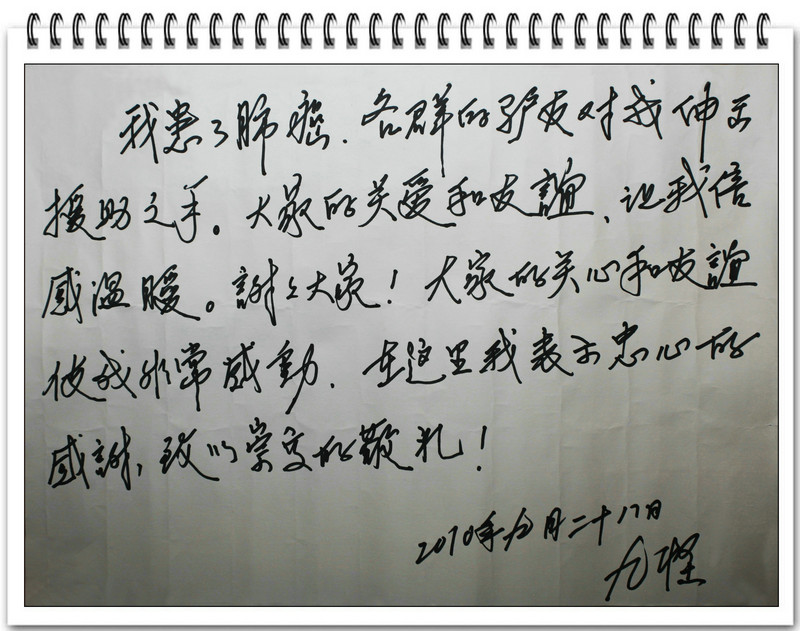 我患了肺癌.各群的驴友对我伸出
援助之手。大家的关爱和友誼、让我倍
感温暖。謝々大家！大家的关心和友誼
使我非常感動.在这里我表示忠心的
感謝、致以崇高的敬礼！
2010年九月二十八日
九怪